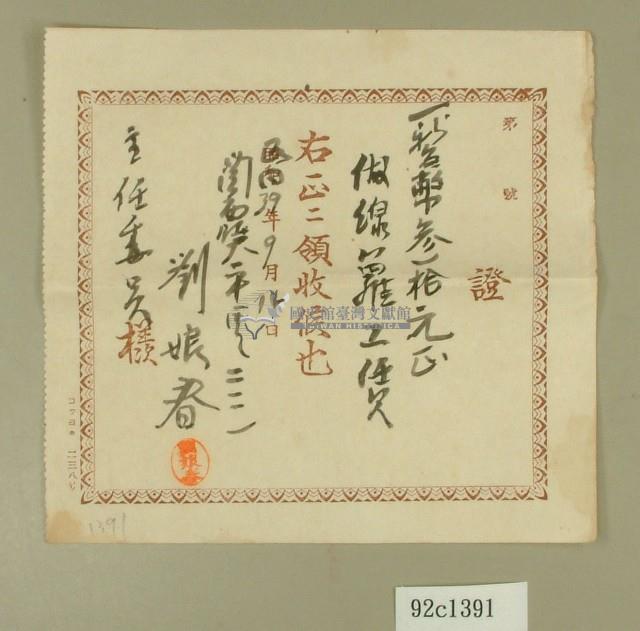 第 號
證
一 新台幣參拾元正
做線籮工伍只
右正ニ領收候也
民國39年9月16日
劉娘春
主任委員樣
國史館臺灣文獻館
TAIWAN HISTORICA
コクヨ
1391
92c1391